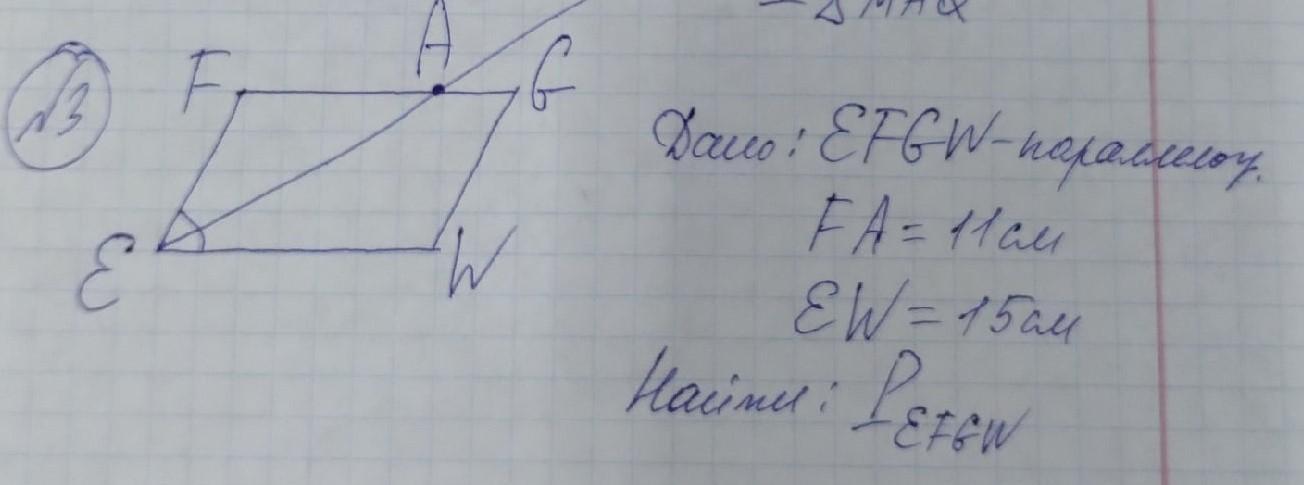 – Δ MAQ
№3
F A G
E W
Дано: EFGW – параллелогр.
FA = 11 см
EW = 15 см
Найти: P EFGW